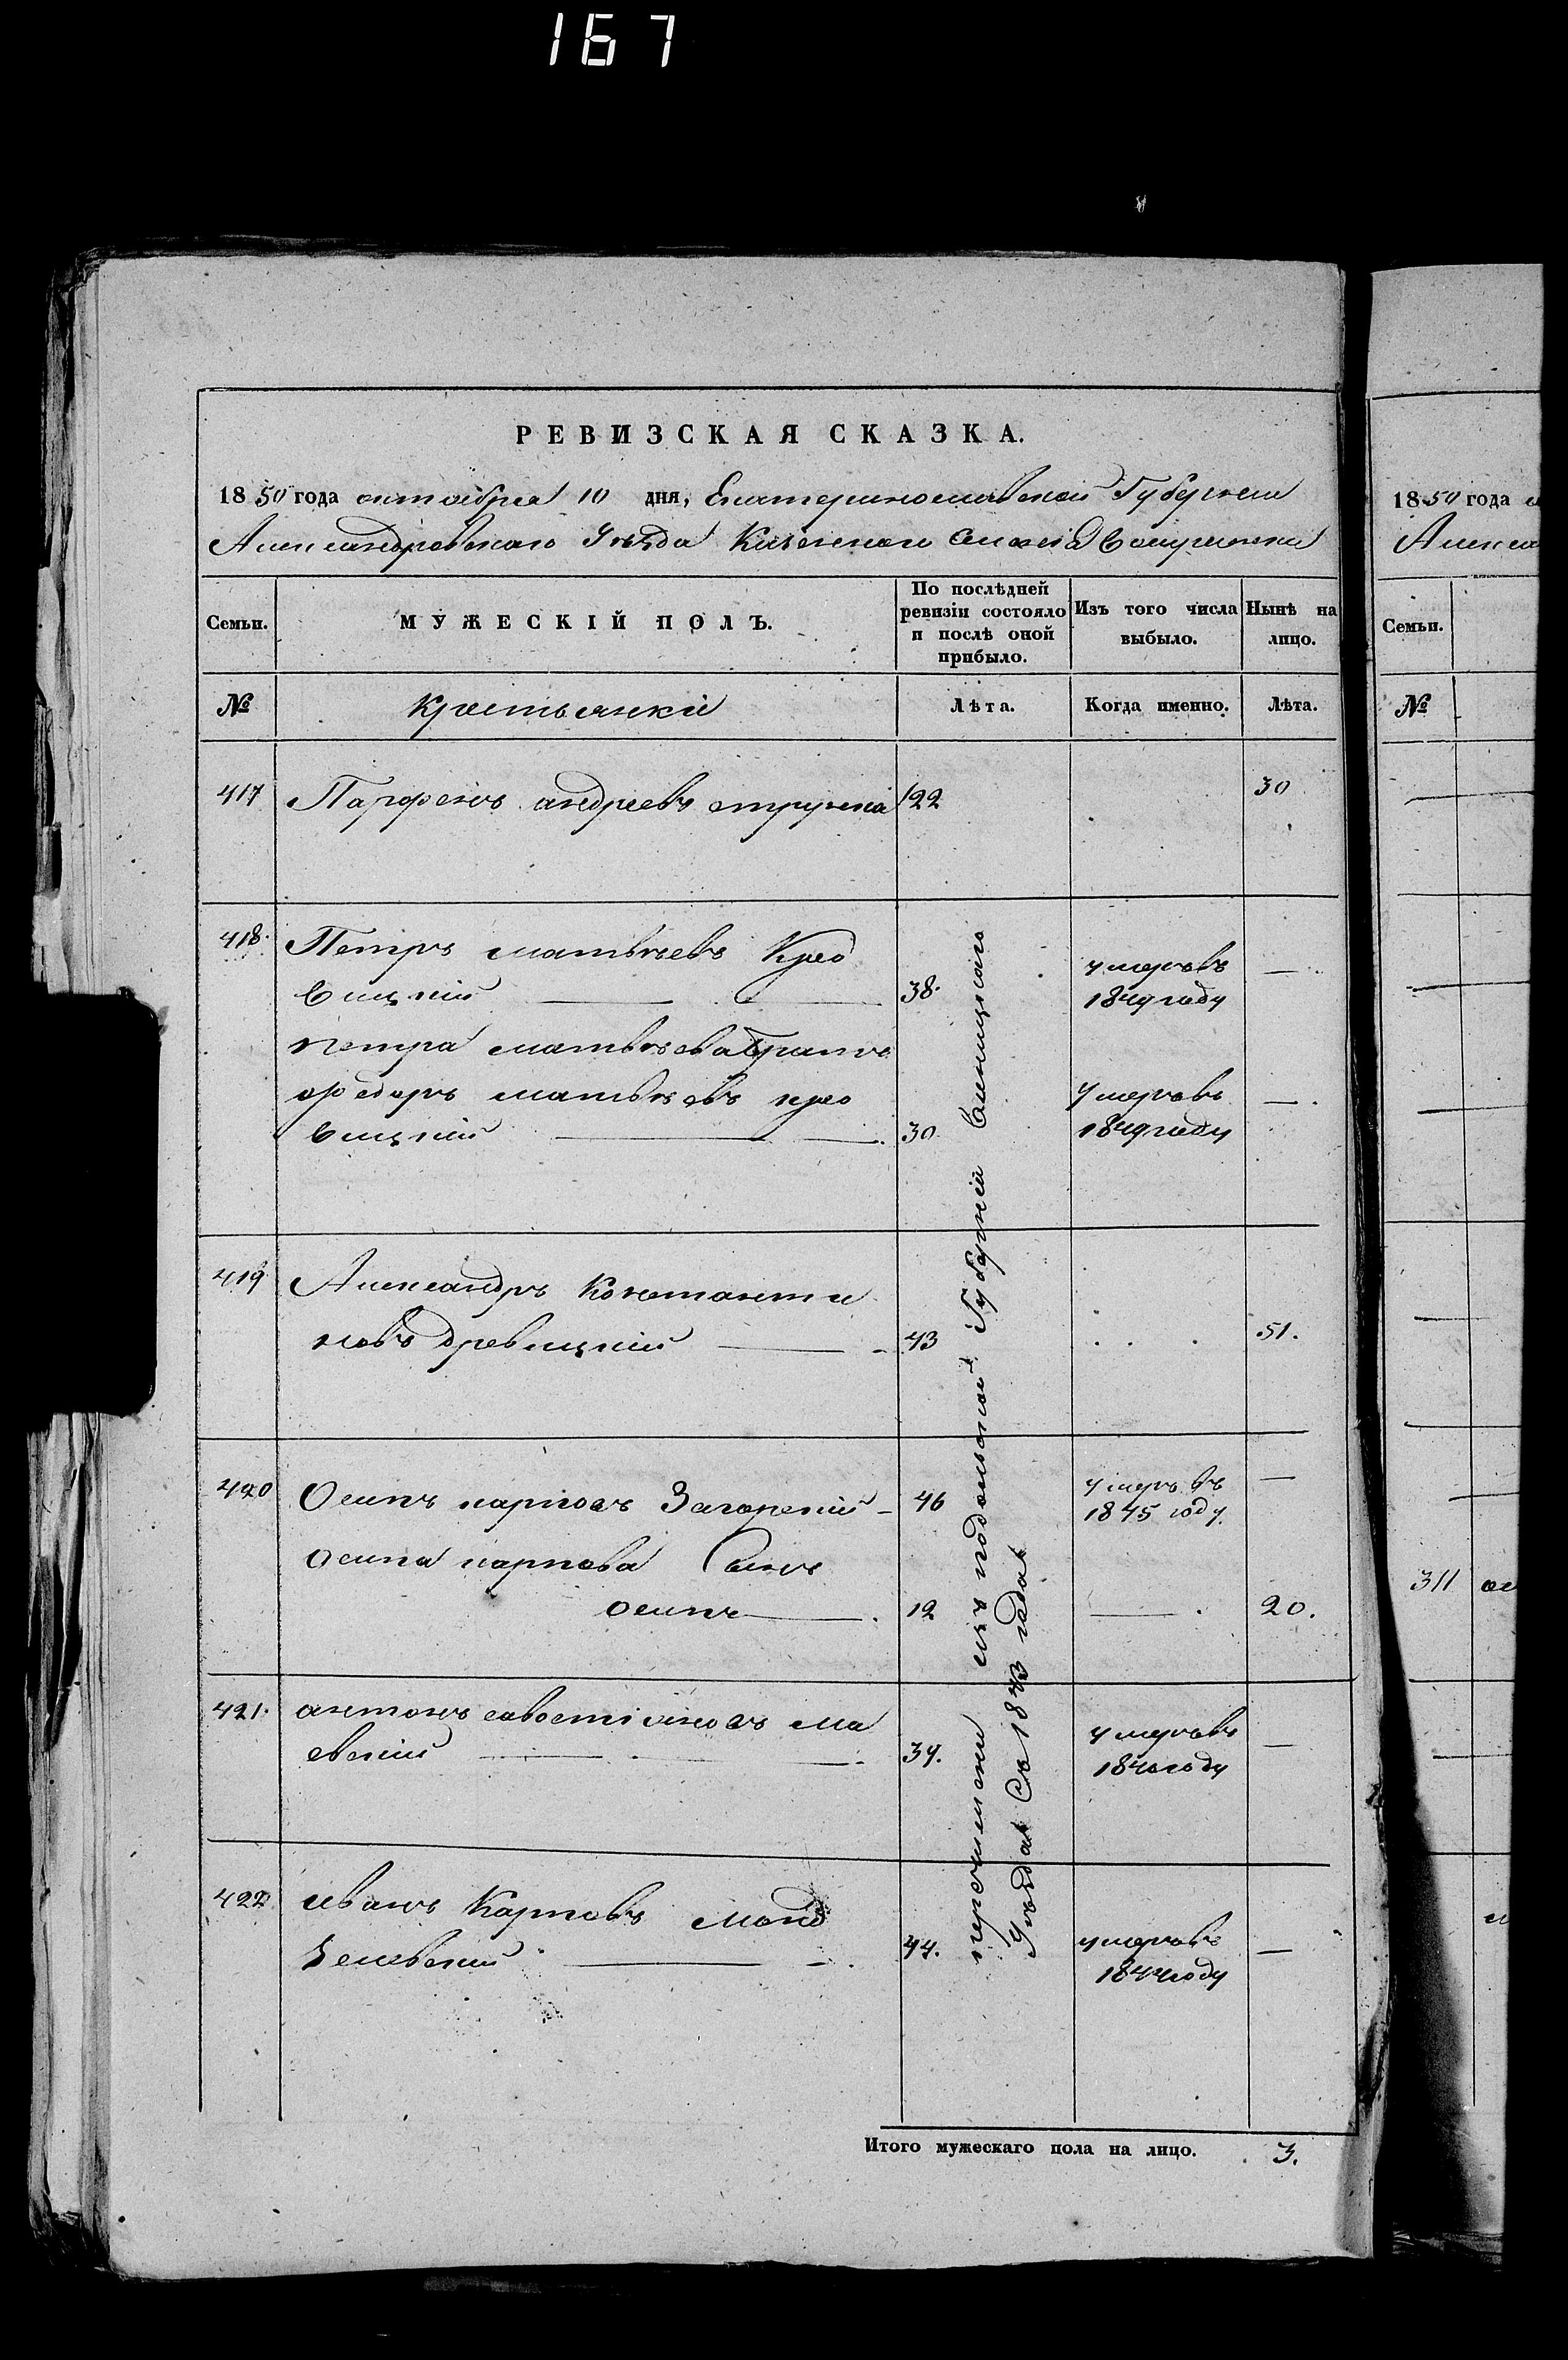 167
РЕВИЗСКАЯ СКАЗКА.
1850 года октября 10 дня, Екатеринославской Губернии
Александровскаго Уезда Казенного Селения
Семьи.
МУЖЕСКІЙ ПОЛЪ.
По послѣдней ревизіи состояло и послѣ оной прибыло.
Изъ того числа выбыло.
Нынѣ на лицо.
№
Крестьянки
Лѣта.
Когда именно.
Лѣта.
417 Парфенъ андреевъ 22 30
418. Петръ матвѣевъ Кре
вицкій 38. умеръ въ 1849 году —
петра матвѣева братъ
федоръ матвѣевъ кре
вицкій 30. умеръ въ 1849 году —
419 Александръ Константи
новъ древицкій 43 51.
420 Осипъ карповъ Загорскій 46 умеръ въ 1845 году —
осипа карпова Сынъ
осипъ 12 — 20.
421. антонъ савостіановъ ма
евскій 34. умеръ въ 1840 году —
422 иванъ Карповъ
зелевскій 44. умеръ въ 1844 году —
перечислены изъ подольской Губерніи Винницкаго
Уезда Съ 1843 года
Итого мужескаго пола на лицо. 3.
1850 года
Семьи.
№
311